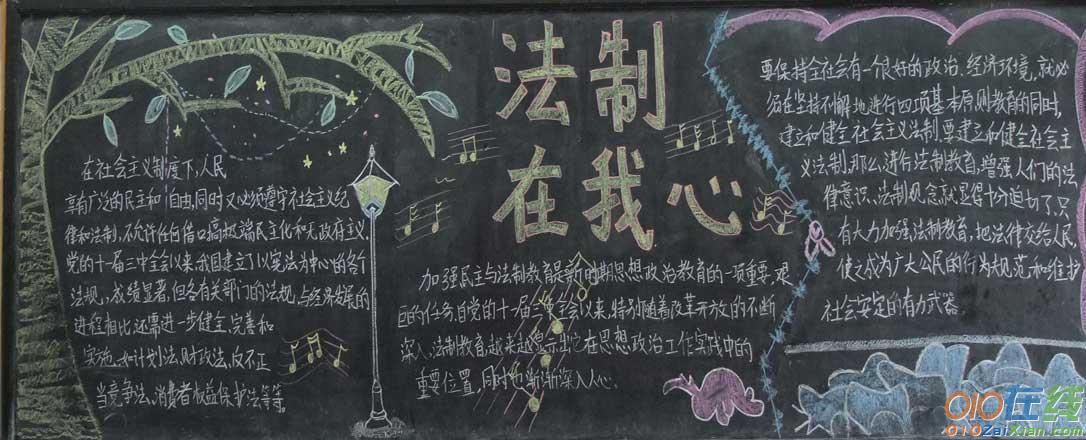 法制
在我心
在社会主义制度下,人民
享有广泛的民主和自由,同时又必须遵守社会主义纪
律和法制,不允许任何借口搞极端民主化和无政府主义,
党的十一届三中全会以来,我国建立了以宪法为中心的各个
法规,成绩显著,但各有关部门的法规,与经济发展的
进程相比还需进一步健全、完善和
实施,如计划法,财政法,反不正
当竞争法、消费者权益保护法等等。
加强民主与法制教育是新时期思想政治教育的一项重要,艰
巨的任务,自党的十一届三中全会以来,特别随着改革开放的不断
深入,法制教育越来越显示出它在思想政治工作实践中的
重要位置,同时也渐渐深入人心。
要保持全社会有一个很好的政治、经济环境,就必
须在坚持不懈地进行四项基本原则教育的同时,
建立和健全社会主义法制要建立和健全社会主
义法制,那么,进行法制教育,增强人们的法
律意识、法制观念就显得十分迫切了,只
有大力加强法制教育,把法律交给人民,
使之成为广大公民的行为规范和维护
社会安定的有力武器
010在线
010ZaiXian.com